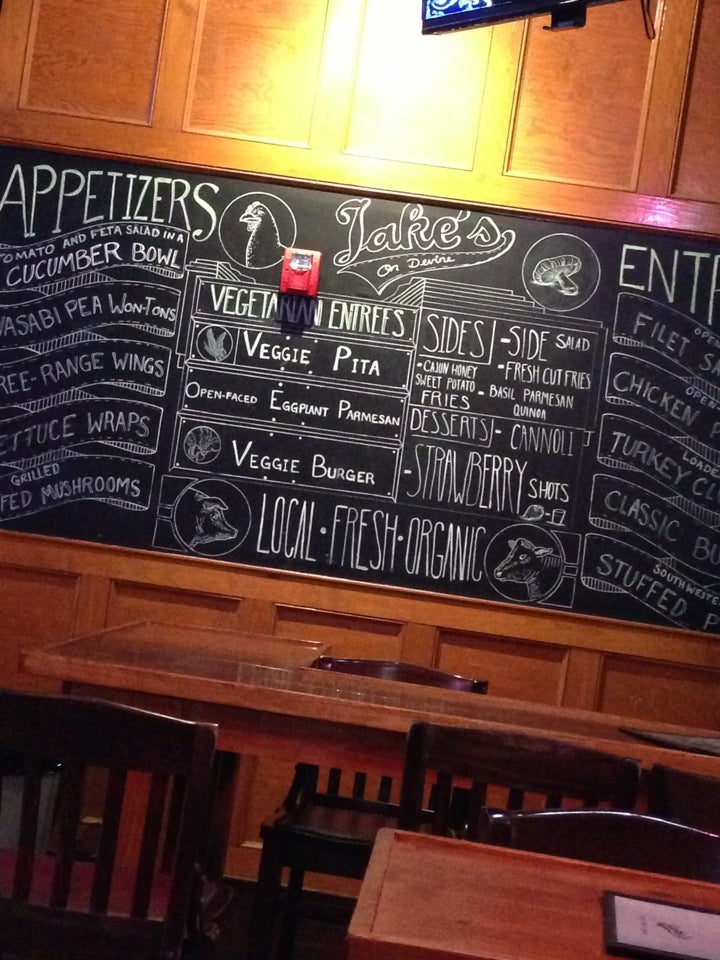 APPETIZERS
TOMATO AND FETA SALAD IN A
CUCUMBER BOWL
WASABI PEA WON-TONS
FREE-RANGE WINGS
LETTUCE WRAPS
GRILLED
MUSHROOMS
Jake's
On Devine
VEGETARIAN ENTREES
VEGGIE PITA
OPEN-FACED EGGPLANT PARMESAN
VEGGIE BURGER
SIDES
-SIDE SALAD
-CAJUN HONEY
SWEET POTATO
FRIES
-FRESH CUT FRIES
-BASIL PARMESAN
QUINOA
DESSERTS
-CANNOLI
-STRAWBERRY
SHOTS
LOCAL·FRESH·ORGANIC
FILET
CHICKEN
LOADED
TURKEY
CLASSIC
SOUTHWESTE
STUFFED